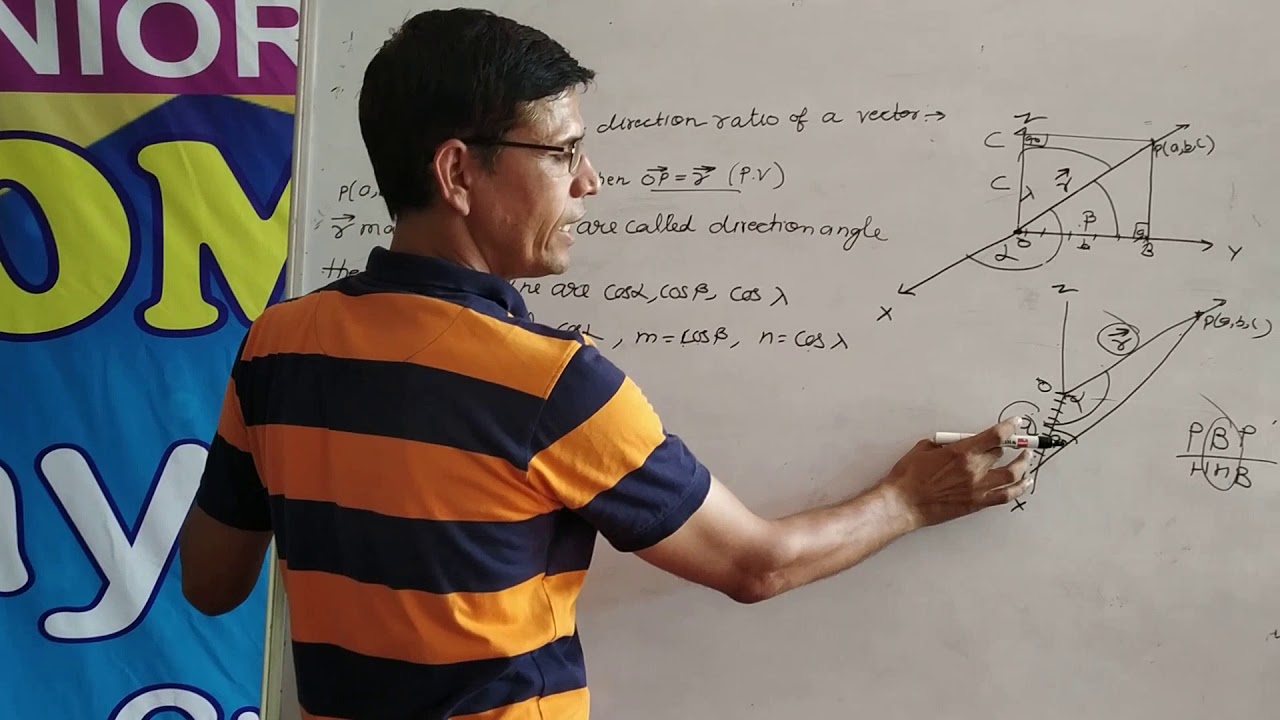 NIOR
OM
ay
direction ratio of a vector →
P(a, hen OP⃗ = r⃗ (P.V)
r⃗ ma are called direction angle
the ne are cosα, cosβ, cos λ
cosα, m = cosβ, n = cos λ
Z
C 90 P(a,b,c)
C r⃗
λ β
O b B Y
α
X
Z
P(a,b,c)
r⃗
O
α
X
P B P
H H B